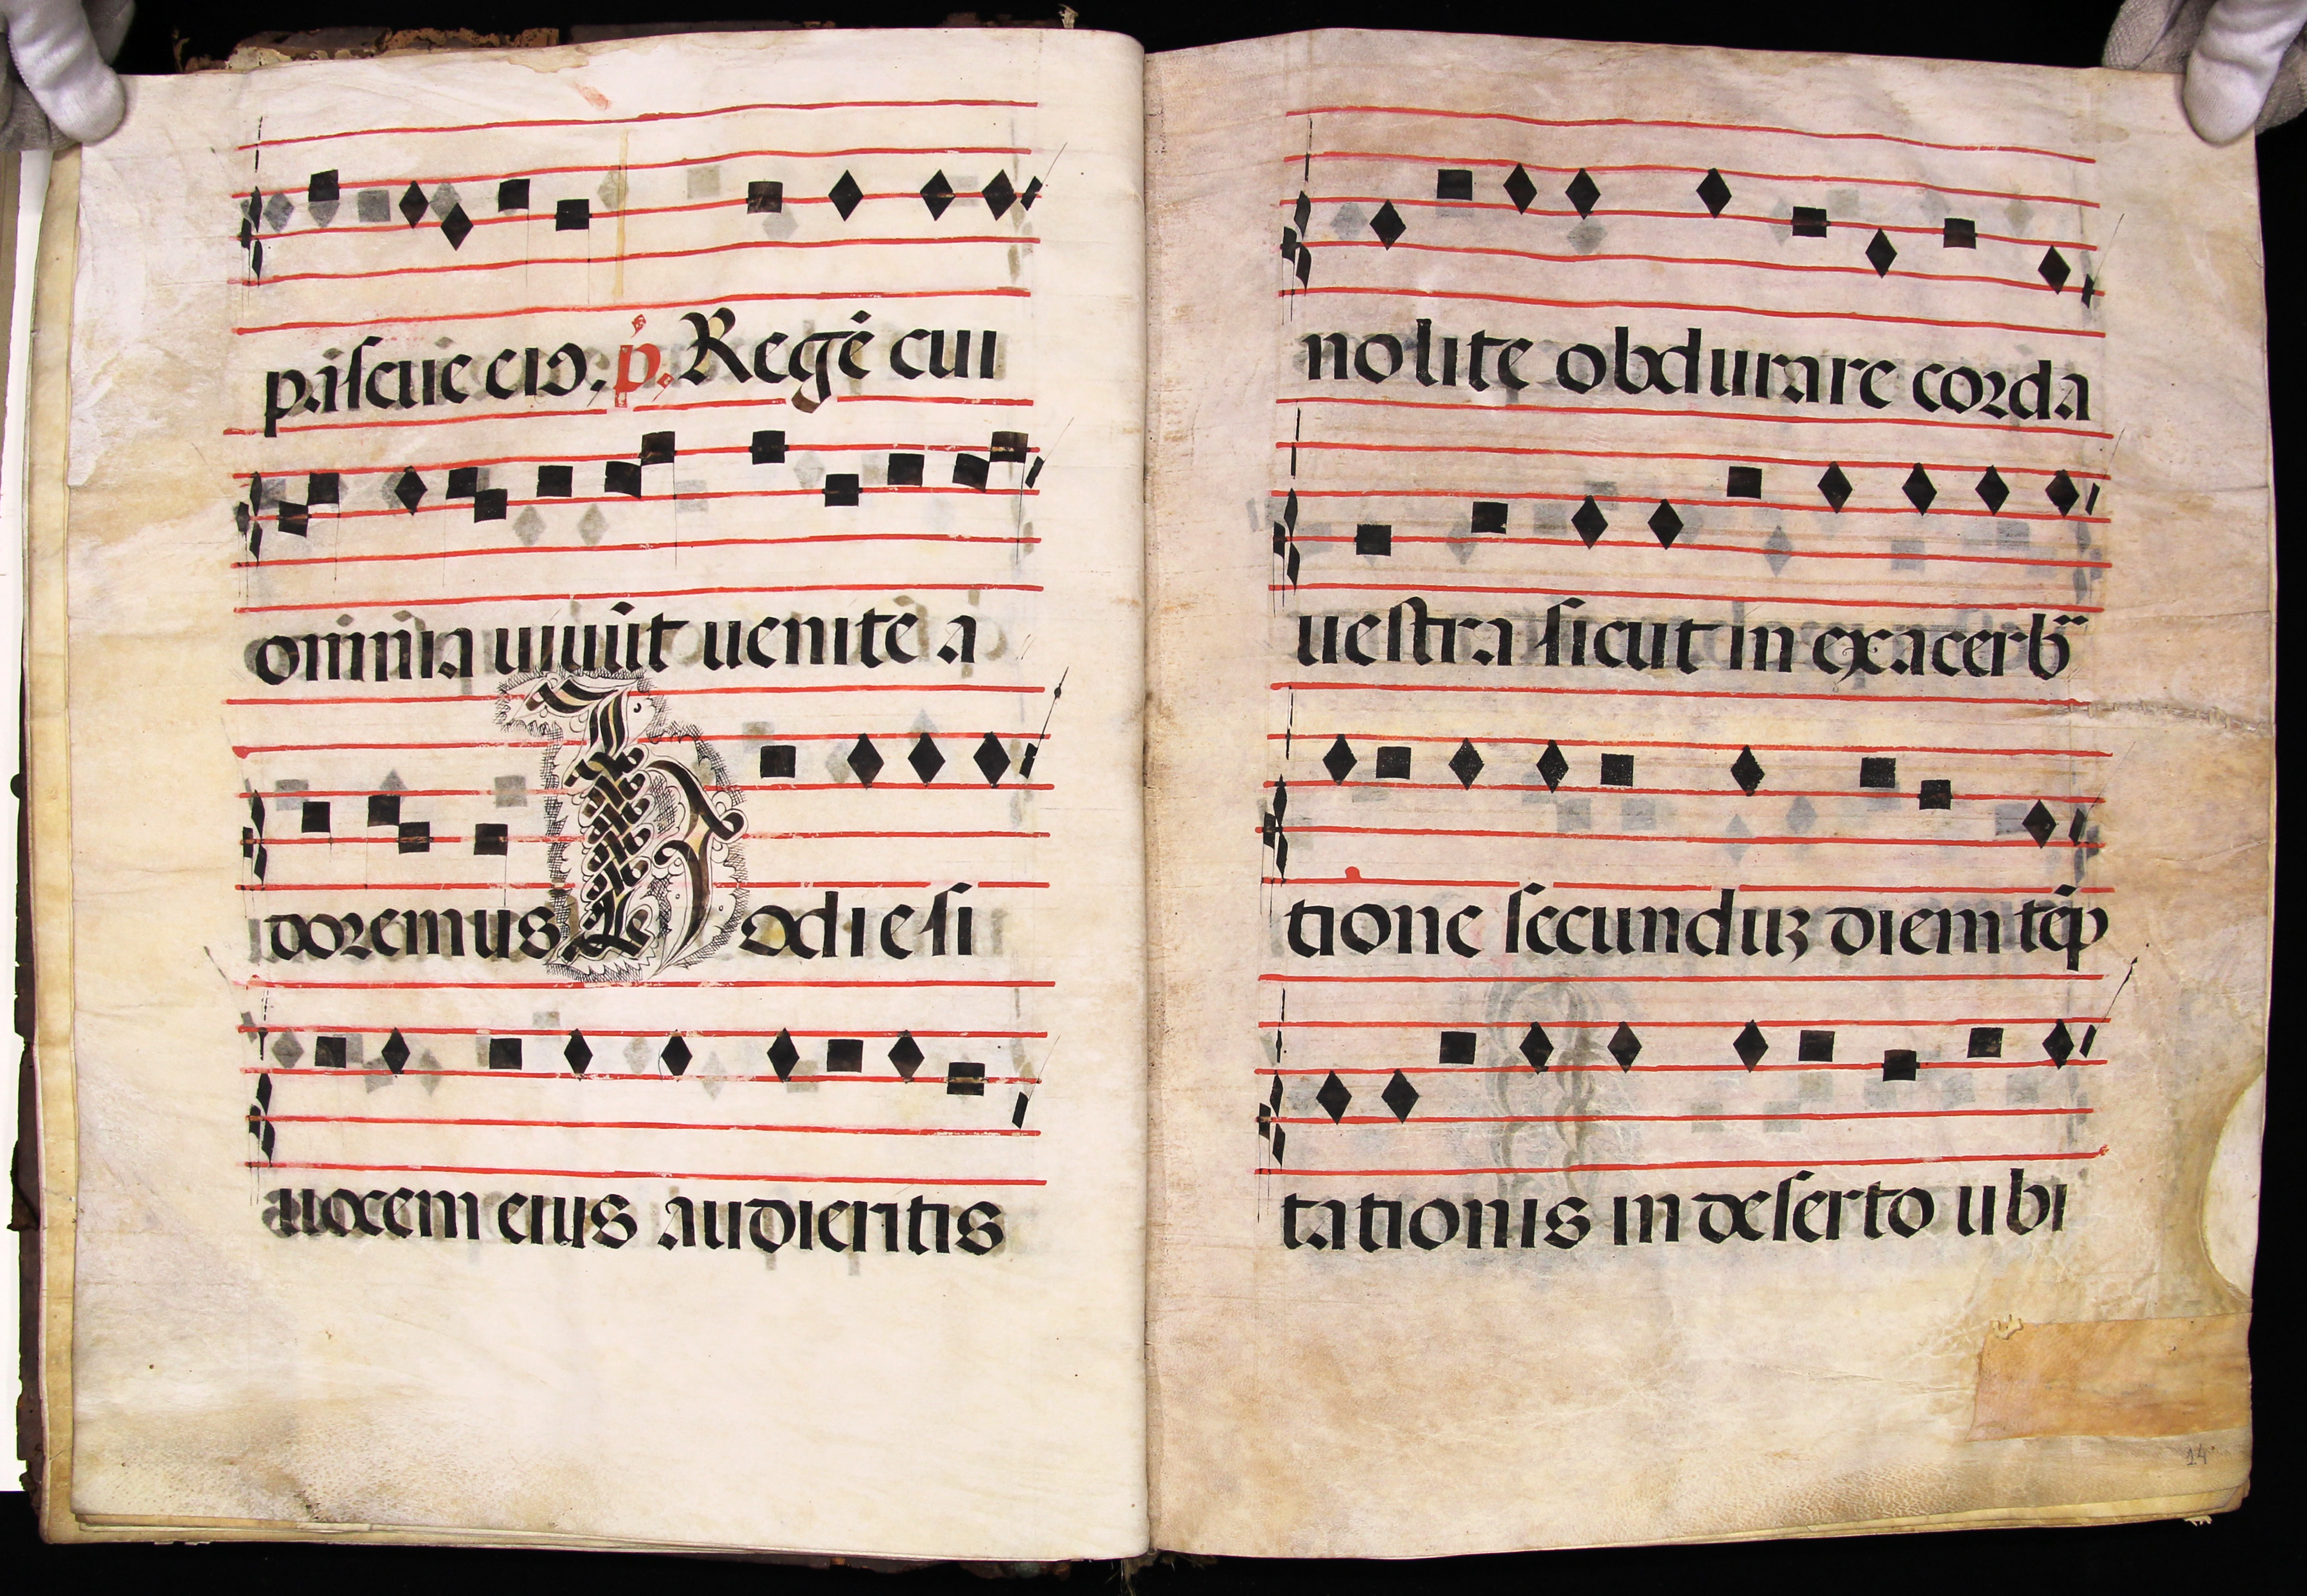 pascue eiꝰ. p. Regē cui
omnia uiuūt uenite a
doremus Hodie si
uocem eius audieritis
nolite obdurare corda
uestra sicut in exacerb
tione secunduꝫ diem tēp
tationis in deserto ubi
14